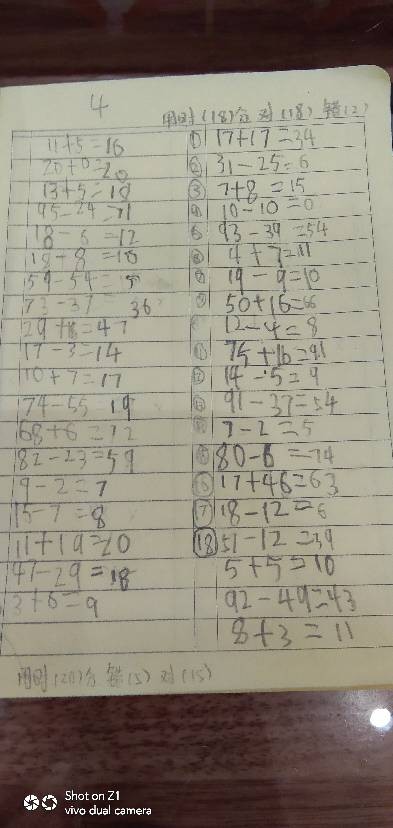 4
用时(18)分 对(18) 错(2)
11+5=16
20+0=20
13+5=18
95-24=71
18-6=12
18-8=10
59-54=
73-37 36
29+18=47
17-3=14
10+7=17
74-55 19
68+6=72
82-23=59
9-2=7
15-7=8
11+19=20
47-29=18
3+6=9
① 17+17=34
② 31-25=6
③ 7+8=15
④ 10-10=0
93-39=54
4+7=11
19-9=10
50+16=66
12-4=8
⑪ 75+16=91
⑫ 14-5=9
⑬ 91-37=54
7-2=5
80-6=74
⑯ 17+46=63
⑰ 18-12=6
⑱ 51-12=39
5+5=10
92-49=43
8+3=11
用时(20)分 错(5) 对(15)